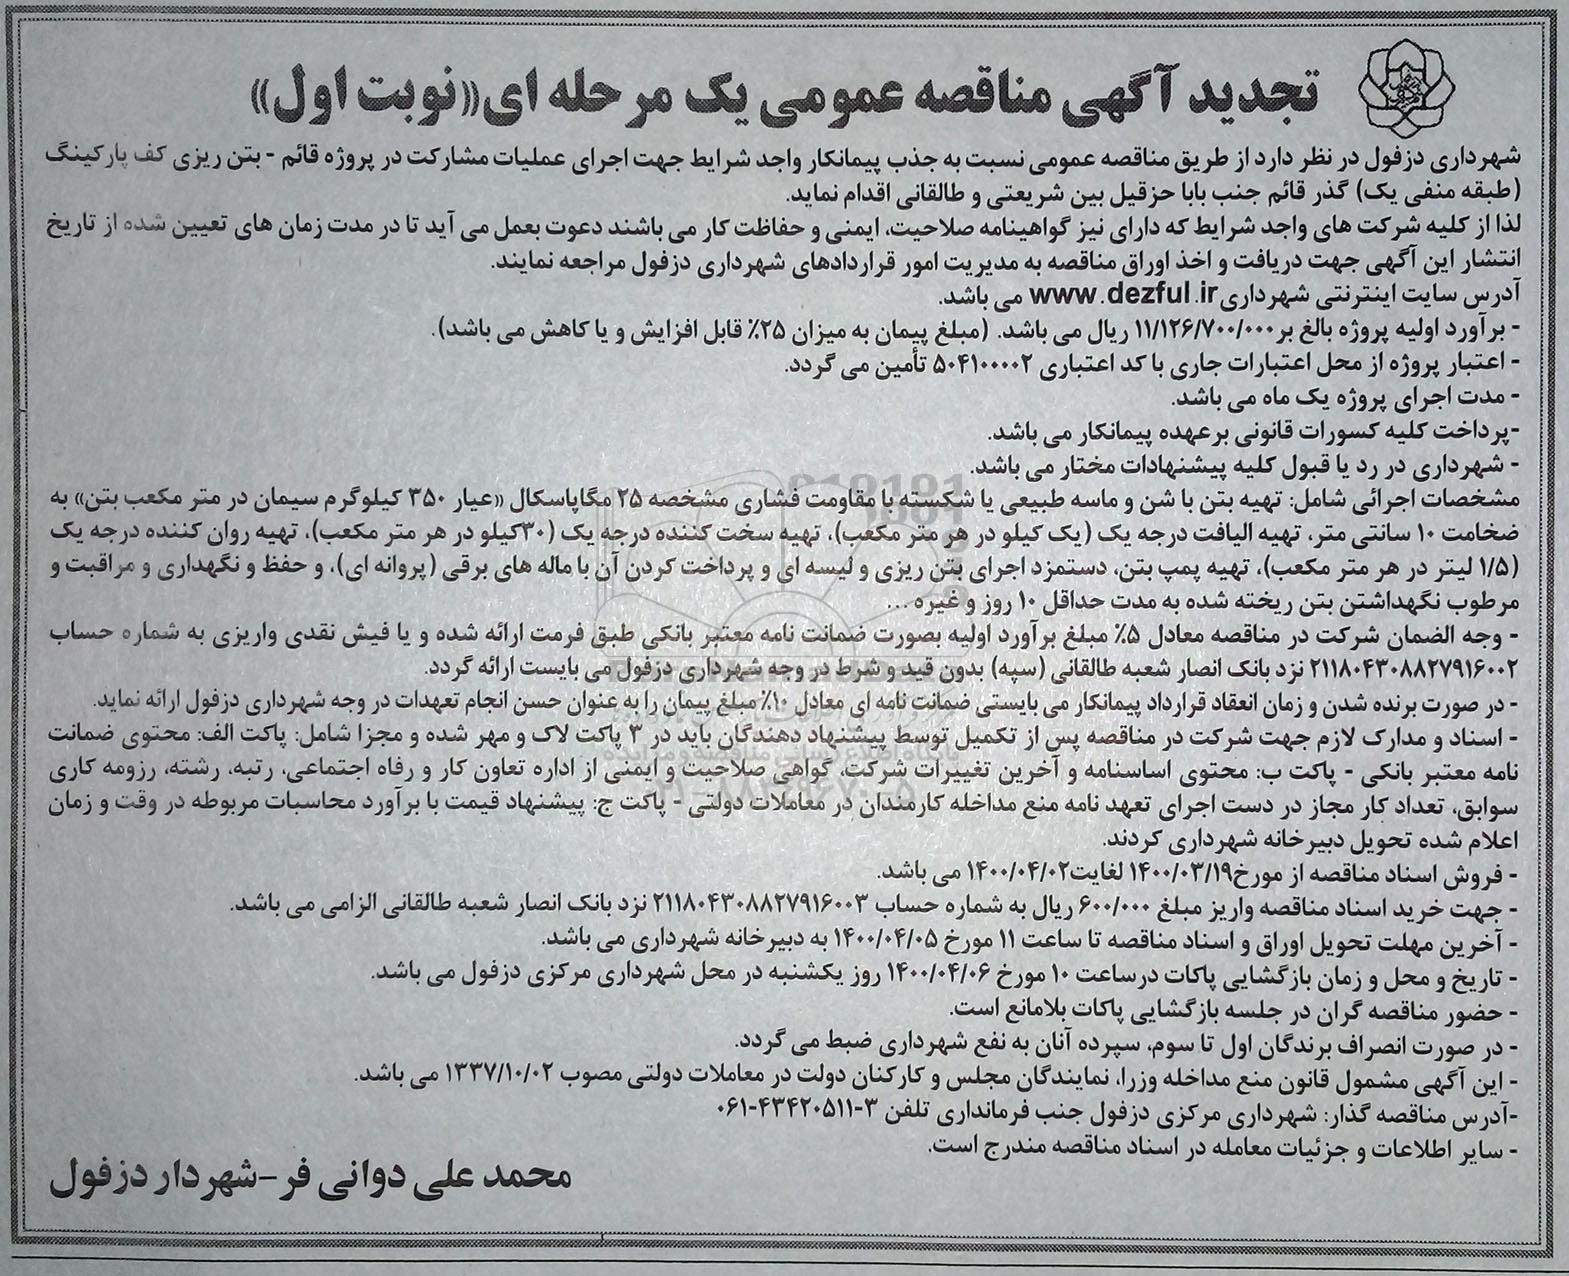 تجدید آگهی مناقصه عمومی یک مرحله ای«نوبت اول»
شهرداری دزفول در نظر دارد از طریق مناقصه عمومی نسبت به جذب پیمانکار واجد شرایط جهت اجرای عملیات مشارکت در پروژه قائم - بتن ریزی کف پارکینگ
(طبقه منفی یک) گذر قائم جنب بابا حزقیل بین شریعتی و طالقانی اقدام نماید.
لذا از کلیه شرکت های واجد شرایط که دارای نیز گواهینامه صلاحیت، ایمنی و حفاظت کار می باشند دعوت بعمل می آید تا در مدت زمان های تعیین شده از تاریخ
انتشار این آگهی جهت دریافت و اخذ اوراق مناقصه به مدیریت امور قراردادهای شهرداری دزفول مراجعه نمایند.
آدرس سایت اینترنتی شهرداری www.dezful.ir می باشد.
- برآورد اولیه پروژه بالغ بر ۱۱/۱۲۶/۷۰۰/۰۰۰ ریال می باشد. (مبلغ پیمان به میزان ۲۵٪ قابل افزایش و یا کاهش می باشد).
- اعتبار پروژه از محل اعتبارات جاری با کد اعتباری ۵۰۴۱۰۰۰۰۲ تأمین می گردد.
- مدت اجرای پروژه یک ماه می باشد.
-پرداخت کلیه کسورات قانونی برعهده پیمانکار می باشد.
- شهرداری در رد یا قبول کلیه پیشنهادات مختار می باشد.
مشخصات اجرائی شامل: تهیه بتن با شن و ماسه طبیعی یا شکسته با مقاومت فشاری مشخصه ۲۵ مگاپاسکال «عیار ۳۵۰ کیلوگرم سیمان در متر مکعب بتن» به
ضخامت ۱۰ سانتی متر، تهیه الیافت درجه یک (یک کیلو در هر متر مکعب)، تهیه سخت کننده درجه یک (۳۰کیلو در هر متر مکعب)، تهیه روان کننده درجه یک
(۱/۵ لیتر در هر متر مکعب)، تهیه پمپ بتن، دستمزد اجرای بتن ریزی و لیسه ای و پرداخت کردن آن با ماله های برقی (پروانه ای)، و حفظ و نگهداری و مراقبت و
مرطوب نگهداشتن بتن ریخته شده به مدت حداقل ۱۰ روز و غیره ...
- وجه الضمان شرکت در مناقصه معادل ۵٪ مبلغ برآورد اولیه بصورت ضمانت نامه معتبر بانکی طبق فرمت ارائه شده و یا فیش نقدی واریزی به شماره حساب
۲۱۱۸۰۴۳۰۸۸۲۷۹۱۶۰۰۲ نزد بانک انصار شعبه طالقانی (سپه) بدون قید و شرط در وجه شهرداری دزفول می بایست ارائه گردد.
- در صورت برنده شدن و زمان انعقاد قرارداد پیمانکار می بایستی ضمانت نامه ای معادل ۱۰٪ مبلغ پیمان را به عنوان حسن انجام تعهدات در وجه شهرداری دزفول ارائه نماید.
- اسناد و مدارک لازم جهت شرکت در مناقصه پس از تکمیل توسط پیشنهاد دهندگان باید در ۳ پاکت لاک و مهر شده و مجزا شامل: پاکت الف: محتوی ضمانت
نامه معتبر بانکی - پاکت ب: محتوی اساسنامه و آخرین تغییرات شرکت، گواهی صلاحیت و ایمنی از اداره تعاون کار و رفاه اجتماعی، رتبه، رشته، رزومه کاری
سوابق، تعداد کار مجاز در دست اجرای تعهد نامه منع مداخله کارمندان در معاملات دولتی - پاکت ج: پیشنهاد قیمت با برآورد محاسبات مربوطه در وقت و زمان
اعلام شده تحویل دبیرخانه شهرداری کردند.
- فروش اسناد مناقصه از مورخ ۱۴۰۰/۰۳/۱۹ لغایت ۱۴۰۰/۰۴/۰۲ می باشد.
- جهت خرید اسناد مناقصه واریز مبلغ ۶۰۰/۰۰۰ ریال به شماره حساب ۲۱۱۸۰۴۳۰۸۸۲۷۹۱۶۰۰۳ نزد بانک انصار شعبه طالقانی الزامی می باشد.
- آخرین مهلت تحویل اوراق و اسناد مناقصه تا ساعت ۱۱ مورخ ۱۴۰۰/۰۴/۰۵ به دبیرخانه شهرداری می باشد.
- تاریخ و محل و زمان بازگشایی پاکات درساعت ۱۰ مورخ ۱۴۰۰/۰۴/۰۶ روز یکشنبه در محل شهرداری مرکزی دزفول می باشد.
- حضور مناقصه گران در جلسه بازگشایی پاکات بلامانع است.
- در صورت انصراف برندگان اول تا سوم، سپرده آنان به نفع شهرداری ضبط می گردد.
- این آگهی مشمول قانون منع مداخله وزرا، نمایندگان مجلس و کارکنان دولت در معاملات دولتی مصوب ۱۳۳۷/۱۰/۰۲ می باشد.
-آدرس مناقصه گذار: شهرداری مرکزی دزفول جنب فرمانداری تلفن ۳-۰۶۱-۴۳۴۲۰۵۱۱
- سایر اطلاعات و جزئیات معامله در اسناد مناقصه مندرج است.
محمد علی دوانی فر-شهردار دزفول